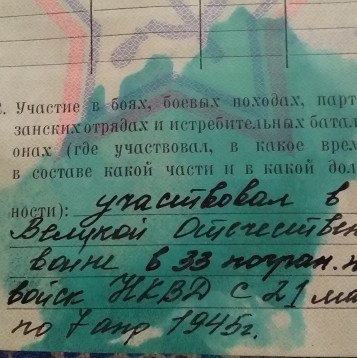 Участие в боях, боевых походах, парт
занских отрядах и истребительных батал
онах (где участвовал, в какое врем
в составе какой части и в какой дол
ности): участвовал в
Великой Отечествен
войне в 33 погран. п
войск НКВД с 21 ма
по 7 апр 1945г.